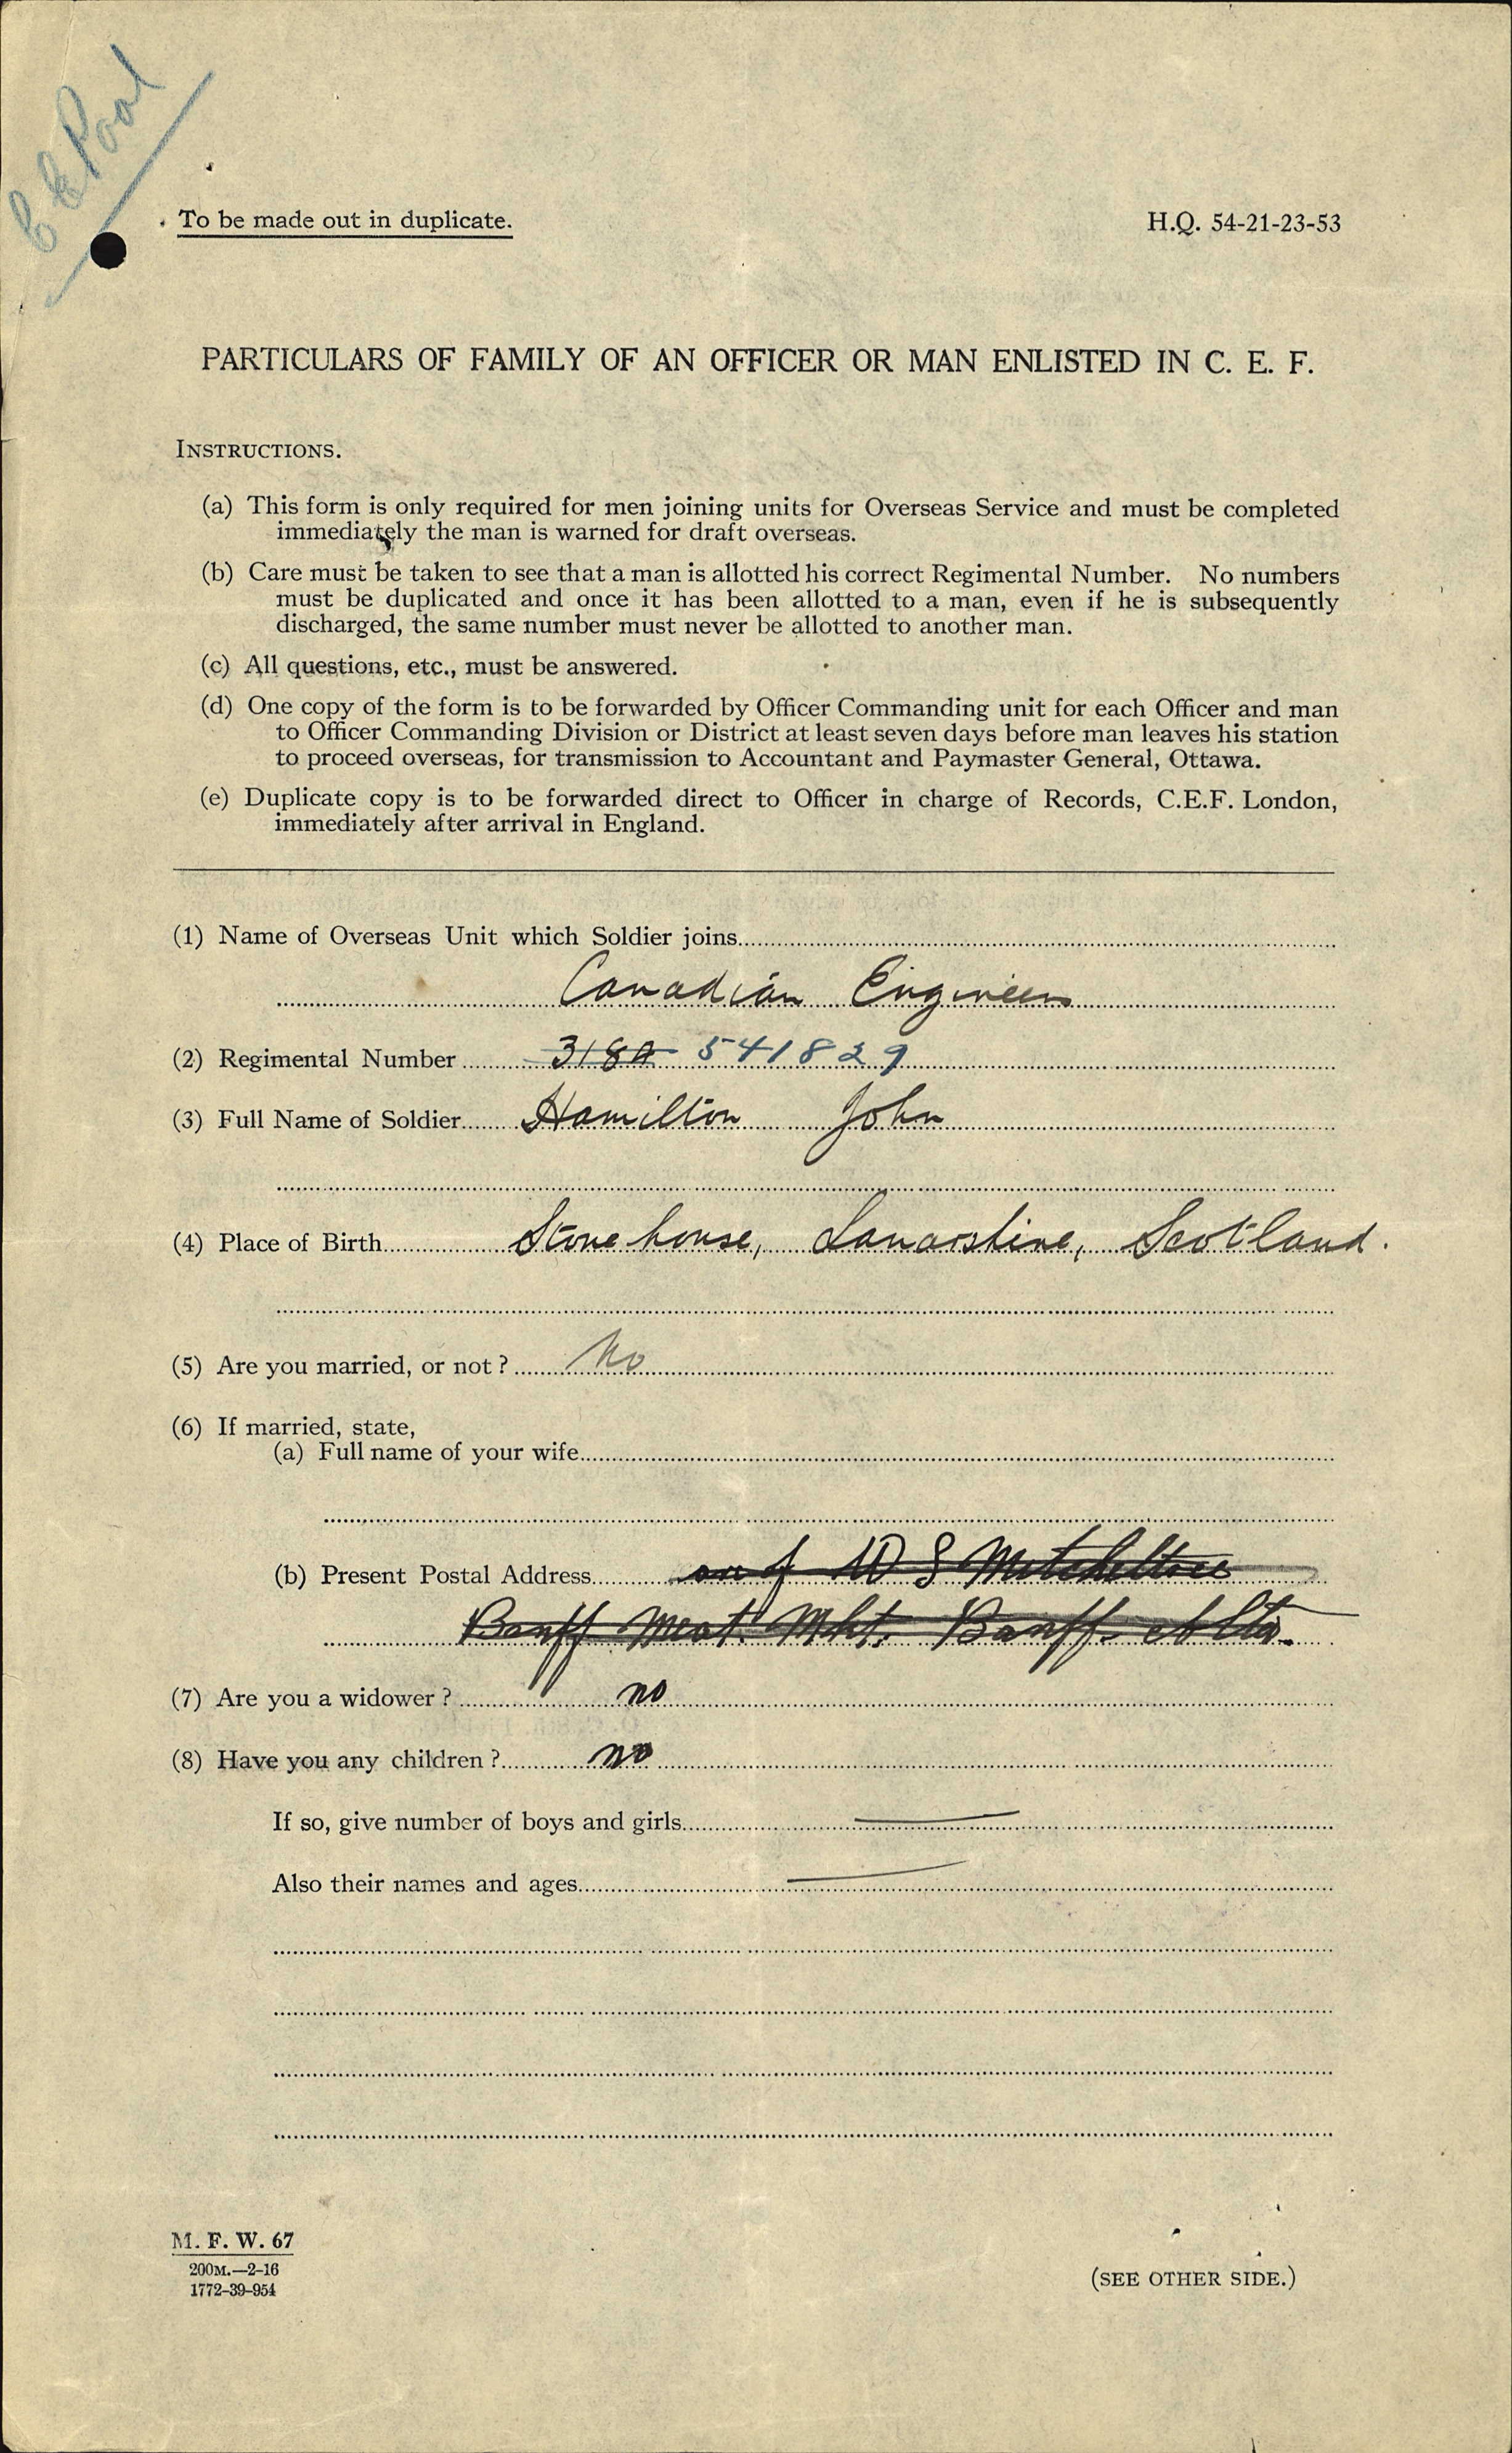 C E Pool
To be made out in duplicate.
H.Q. 54-21-23-53
PARTICULARS OF FAMILY OF AN OFFICER OR MAN ENLISTED IN C. E. F.
INSTRUCTIONS.
(a) This form is only required for men joining units for Overseas Service and must be completed
immediately the man is warned for draft overseas.
(b) Care must be taken to see that a man is allotted his correct Regimental Number. No numbers
must be duplicated and once it has been allotted to a man, even if he is subsequently
discharged, the same number must never be allotted to another man.
(c) All questions, etc., must be answered.
(d) One copy of the form is to be forwarded by Officer Commanding unit for each Officer and man
to Officer Commanding Division or District at least seven days before man leaves his station
to proceed overseas, for transmission to Accountant and Paymaster General, Ottawa.
(e) Duplicate copy is to be forwarded direct to Officer in charge of Records, C.E.F. London,
immediately after arrival in England.
(1) Name of Overseas Unit which Soldier joins
Canadian Engineers
(2) Regimental Number 541829
(3) Full Name of Soldier Hamilton John
(4) Place of Birth Stonehouse, Lanarshire, Scotland.
(5) Are you married, or not? No
(6) If married, state,
(a) Full name of your wife
(b) Present Postal Address W S
Banff Meat Mkt. Banff. Alta.
(7) Are you a widower? no
(8) Have you any children? no
If so, give number of boys and girls —
Also their names and ages —
M. F. W. 67
200M.—2-16
1772-39-954
(SEE OTHER SIDE.)